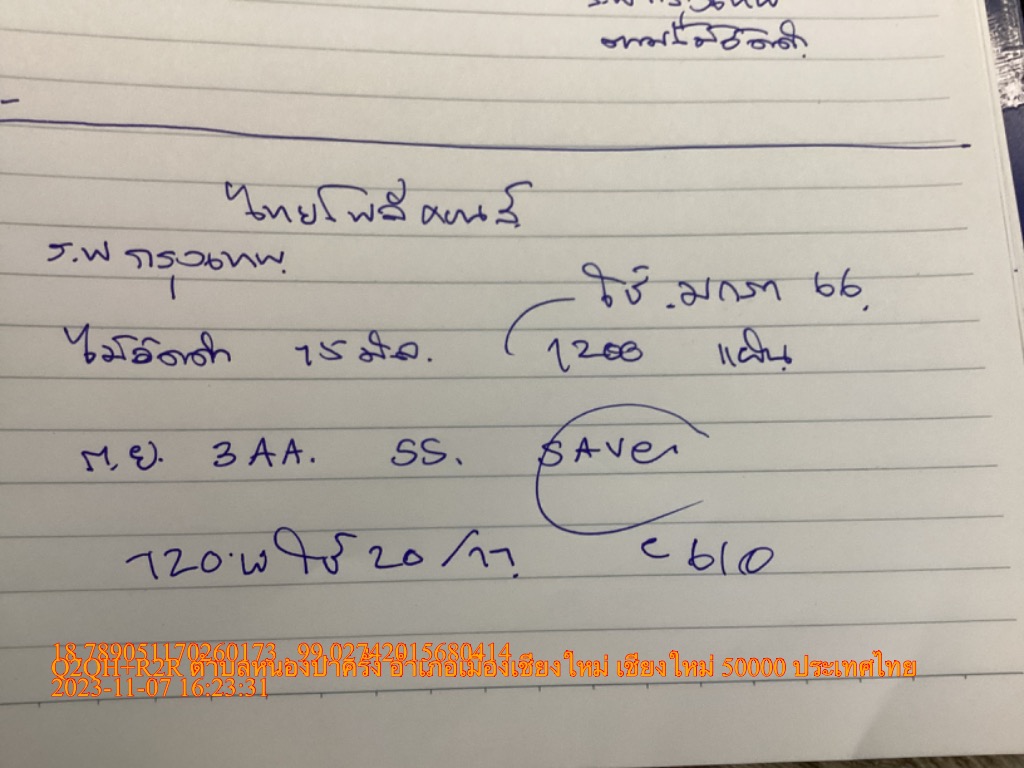 ร.พ กรุงเทพ
ตามไม้อัดดำ
ไทยโพลีดอนส์
ร.พ กรุงเทพ
ใช้ มกรา 66.
ไม้อัดดำ 15 มิล. 1200 แผ่น
ต.ย. 3AA. SS. SAver
120.พ ใช้ 20/11. C610
18.789051170260173, 99.02742015680414
Q2QH+R2R ตำบลหนองป่าครั่ง อำเภอเมืองเชียงใหม่ เชียงใหม่ 50000 ประเทศไทย
2023-11-07 16:23:31